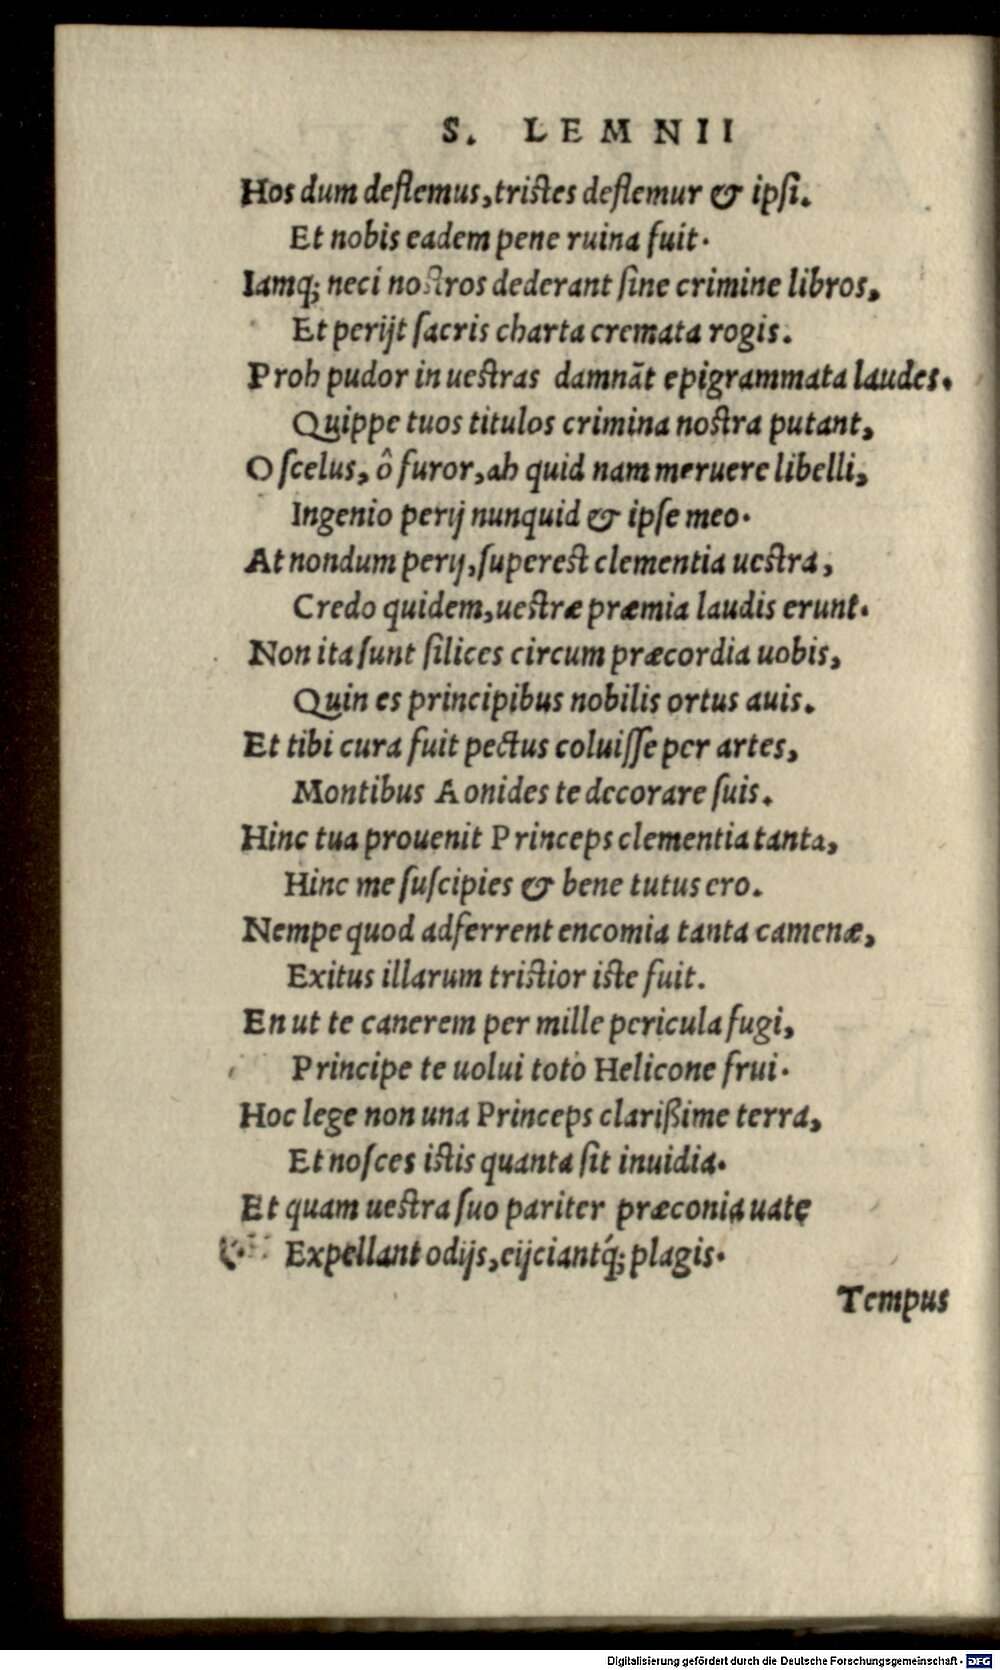 S. LEMNII
Hos dum deflemus, tristes deflemur & ipsi.
Et nobis eadem pene ruina fuit.
Iamq; neci nostros dederant sine crimine libros,
Et perijt sacris charta cremata rogis.
Proh pudor in uestras damnāt epigrammata laudes.
Quippe tuos titulos crimina nostra putant,
O scelus, ô furor, ah quid nam meruere libelli,
Ingenio perij nunquid & ipse meo.
At nondum perij, superest clementia uestra,
Credo quidem, uestræ præmia laudis erunt.
Non ita sunt silices circum præcordia uobis,
Quin es principibus nobilis ortus auis.
Et tibi cura fuit pectus coluisse per artes,
Montibus Aonides te decorare suis.
Hinc tua prouenit Princeps clementia tanta,
Hinc me suscipies & bene tutus ero.
Nempe quod adferrent encomia tanta camenæ,
Exitus illarum tristior iste fuit.
En ut te canerem per mille pericula fugi,
Principe te uolui toto Helicone frui.
Hoc lege non una Princeps clarißime terra,
Et nosces istis quanta sit inuidia.
Et quam uestra suo pariter præconia uate
Expellant odijs, eijciantq́; plagis.
Tempus
Digitalisierung gefördert durch die Deutsche Forschungsgemeinschaft - DFG